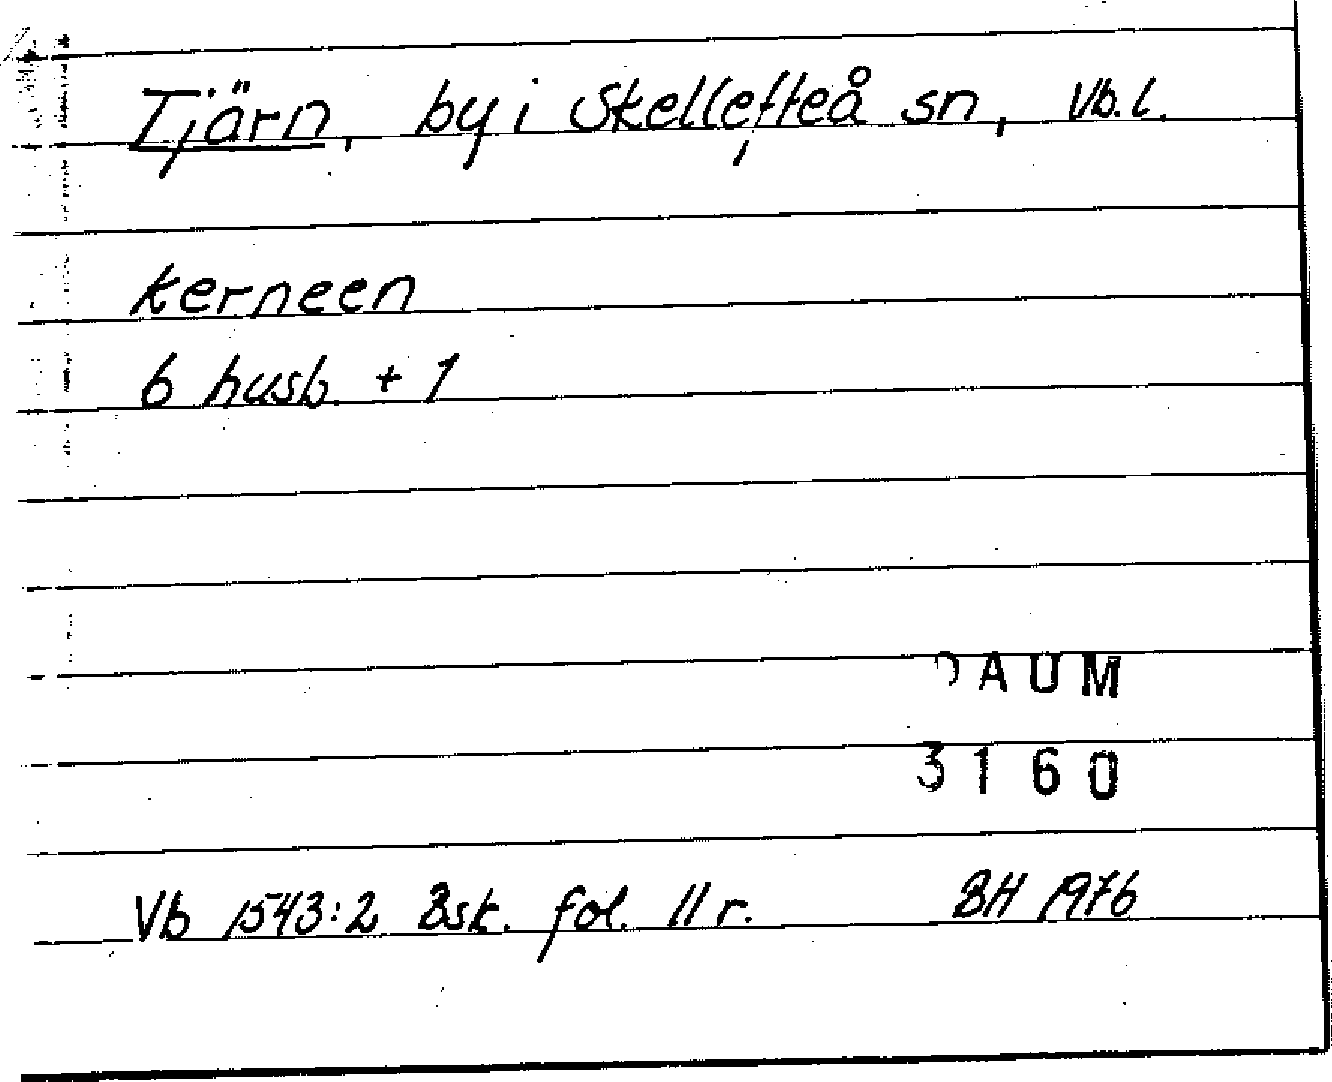 Tjärn, by i Skellefteå sn, Vb.l.
kerneen
6 husb. + 1
DAUM
3160
Vb 1543:2 Bsk. fol. 11 r. BH 1976